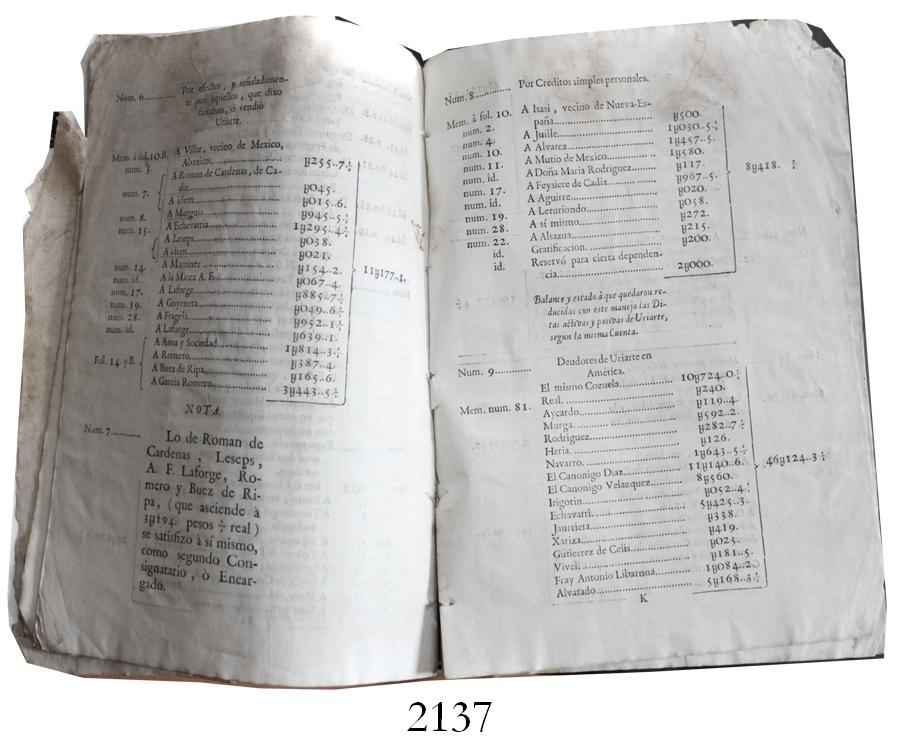 Num. 6............ Por efectos, y señaladamen-
te por aquellos, que dixo
faltaban, ò vendiò
Uriarte.
Mem. à fol. 10. B. A Villar, vecino de Mexico,
num. 3. Abanicos........ y255..7½
A Roman de Cardenas, de Ca-
num. 7. diz........ y045.
A idem........ y015..6.
num. 8. A Murguia........ y945..5½
num. 15. A Echevarria........ 1y295..4½
A Leseps........ y038.
A idem........ y021.
num. 14. A Martinez........ y154..2. 11y177..1.
num. id. A la Marca A. F........ y067..4.
num. 17. A Laforge........ y885..7½
num. 19. A Goyeneta........ y049..6½
num. 28. A Fragela........ y952..1½
num. id. A Laforge........ y639..1.
Fol. 14 y B. A Ama y Sociedad........ 1y814..3½
A Romero........ y387..4.
A Buez de Ripa........ y165..6.
A Garcia Romero........ 3y443..5½
NOTA.
Num. 7............ Lo de Roman de
Cardenas, Leseps,
A. F. Laforge, Ro-
mero y Buez de Ri-
pa, (que asciende à
3y194. pesos ½ real)
se satisfizo à sì mismo,
como segundo Con-
signatario, ò Encar-
gado.
Num. 8............ Por Creditos simples personales.
Mem. à fol. 10. A Isasi, vecino de Nueva-Es-
num. 2. paña........ y500.
num. 4. A Juille........ 1y030..5½
num. 10. A Alvarez........ 1y457..5½
num. 11. A Mutio de Mexico........ 1y580.
num. id. A Doña Maria Rodriguez........ y117. 8y418. ½
num. 17. A Feysiere de Cadiz........ y967..5½
num. id. A Aguirre........ y020.
num. 19. A Leturiondo........ y058.
num. 28. A sì mismo........ y272.
num. 22. A Alsazua........ y215.
id. Gratificacion........ y200.
id. Reservò para cierta dependen-
cia........ 2y000.
Balance y estado à que quedaron re-
ducidas con este manejo las Di-
tas activas y pasivas de Uriarte,
segun la misma Cuenta.
Num. 9............ Deudores de Uriarte en
América.
El mismo Cozuela........ 10y724..0½
Mem. num. 81. Real........ y240.
Aycardo........ y119..4.
Murga........ y592..2.
Rodriguez........ y282..7½
Heria........ y126.
Navarro........ 1y643..5½
El Canonigo Diaz........ 11y140..6. 46y124..3½
El Canonigo Velazquez........ 8y560.
Irigorin........ y052..4½
Echavarri........ 5y425..3.
Jaurrieta........ y338.
Xariza........ y419.
Gutierrez de Celis........ y025.
Viveli........ y181..5.
Fray Antonio Libarona........ 1y084..2.
Alvarado........ 5y168..3½
K
2137